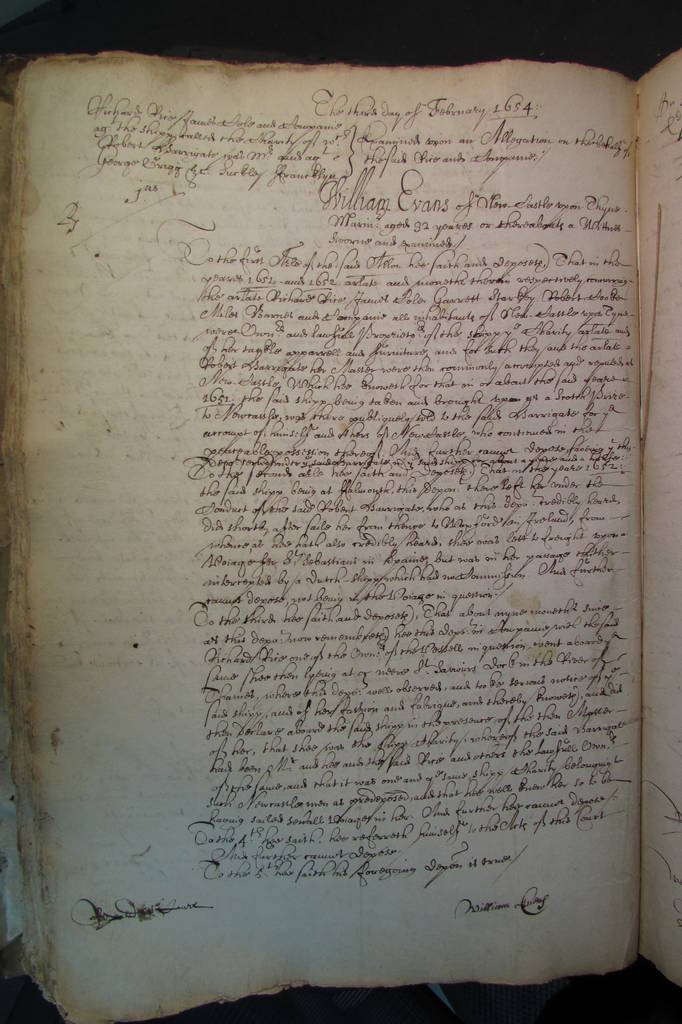 The third day of February 1654:
Richard Rice James Cole and Companie
agt the shipp called the Charity of wch
Robert Barrigate was Mr and agt
George Grigg &c. Suckley ffrancklyn
Examined upon an Allegation on the behalfe of
the said Rice and Companie.
1us
William Evans of New Castle upon Thyne
Marinr aged 32 yeares or thereabouts a Wittnes
sworne and examined/
To the first Artle of the said Allon hee saith and deposeth, That in the
yeares 1651 and 1652 arlate and moneths therein respectively concurring
the arlate Richard Rice, James Cole, Garrett Starkey Robert
Miles Barnes and Companie all inhabitants of New Castle upon Tyne
were Ownrs and lawfull Proprietrs of the shipp ye Charity arlate and
of her tackle apparrell and furniture, and for such they and the arlate
Robert Barrigate her Master were then commonly accompted and reputed at
New Castle, Which hee knoweth for that in or about the said yeare
1651 the said shipp being taken and brought upon as a Scotch Prize
to Newcastle, was there publiquely sold to the said Barrigate for ye
accompt of himselfe and others of Newcastle, who continued in the
peaceable possession thereof. And further cannot depose, saveing that this
Depot served under ye said Barrigate in ye said shipp for about a yeare and a halfe.
To the second arle hee saith and deposeth, That in the yeare 1652:
the said shipp being at ffalmouth, this Deponent there left her under the
Conduct of the said Robert Barrigate, who as this depot credibly heard,
did shortly after saile her from thence to Wexford in Ireland, from
whence as hee hath also credibly heard, shee was lett to freight upon a
Voiage for St Sebastians in Spaine, but was in her passage thither
intercepted by a Dutch shipp which had no Commission. And further
cannot depose, not being in the Voiage in question.
To the third hee saith and deposeth, That about nyne moneths since
as this depot now remembreth, hee this depot in Companie with the said
Richard Rice one of the Ownrs of the Vessell in question, went aboard ye
same shee then lyeing at or neere St Saviours Dock in the River of
Thames, where this depot well observed, and tooke serious notice of ye
said shipp, and of her fashion and fabrique, and thereby knoweth, and did
then declare aboard the said shipp in the presence of the then Master
of her, that shee was the shipp Charity, whereof the said Barrigate
had been Mr and hee and the said Rice and others the lawfull Ownrs
of the same, and that it was one and ye same shipp Charity belonging to
such Newcastle men as predeposed, and that hee well knew her so to be
having sailed severall Voiages in her. And further hee cannot depose/
To the 4th hee saith, hee referreth himselfe to the Acts of this Court
And further cannot depose.
To the 5th hee saith his foregoing depon is true/
William Evans